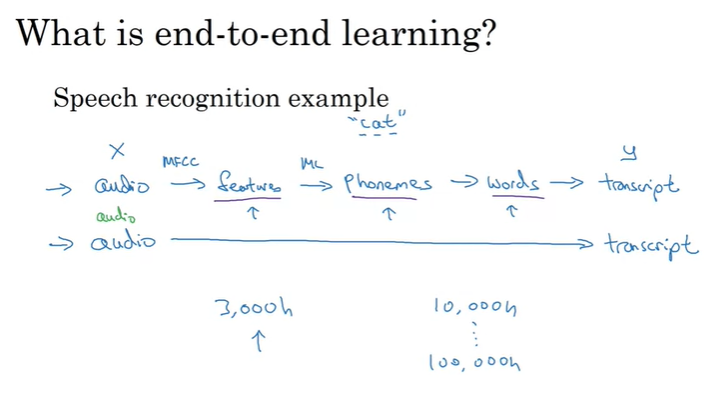 What is end-to-end learning?
Speech recognition example
"cat"
X MFCC ML y
→ audio → features → phonemes → words → transcript
audio
→ audio → transcript
3,000h 10,000h
100,000h